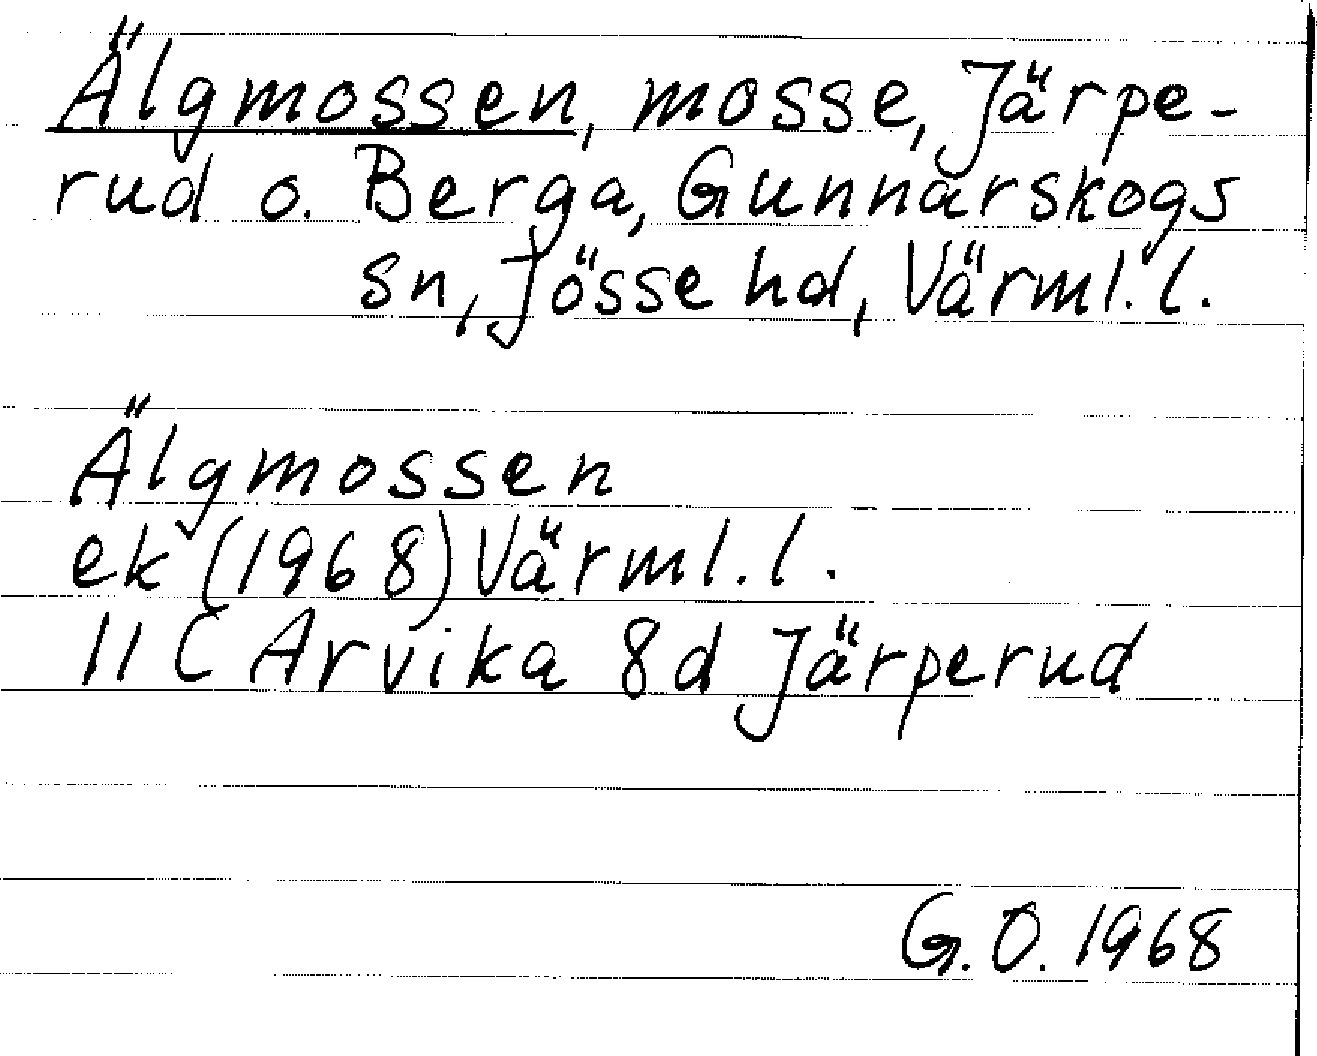 Älgmossen, mosse, Järpe-
rud o. Berga, Gunnarskogs
sn, Jösse hd, Värml. l.
Älgmossen
ek (1968) Värml. l.
11 C Arvika 8d Järperud
G. O. 1968